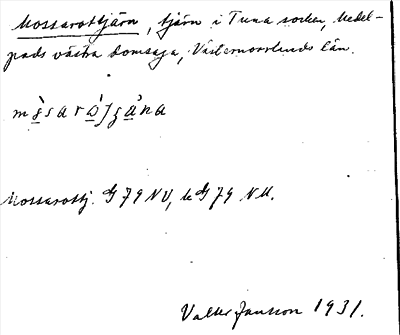 Mossarottjärn, tjärn i Tuna socken, Medel-
pads västra domsaga, Västernorrlands län.
Mossarottj. G 79 NV, G 79 NV.
Valter Jansson 1931.